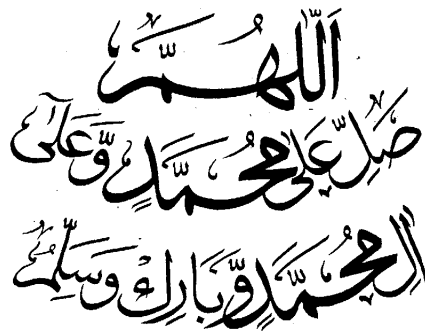 اَللّٰهُمَّ
صَلِّ عَلٰى مُحَمَّدٍ وَّعَلٰٓى
اٰلِ مُحَمَّدٍ وَّبَارِكْ وَسَلِّمْ